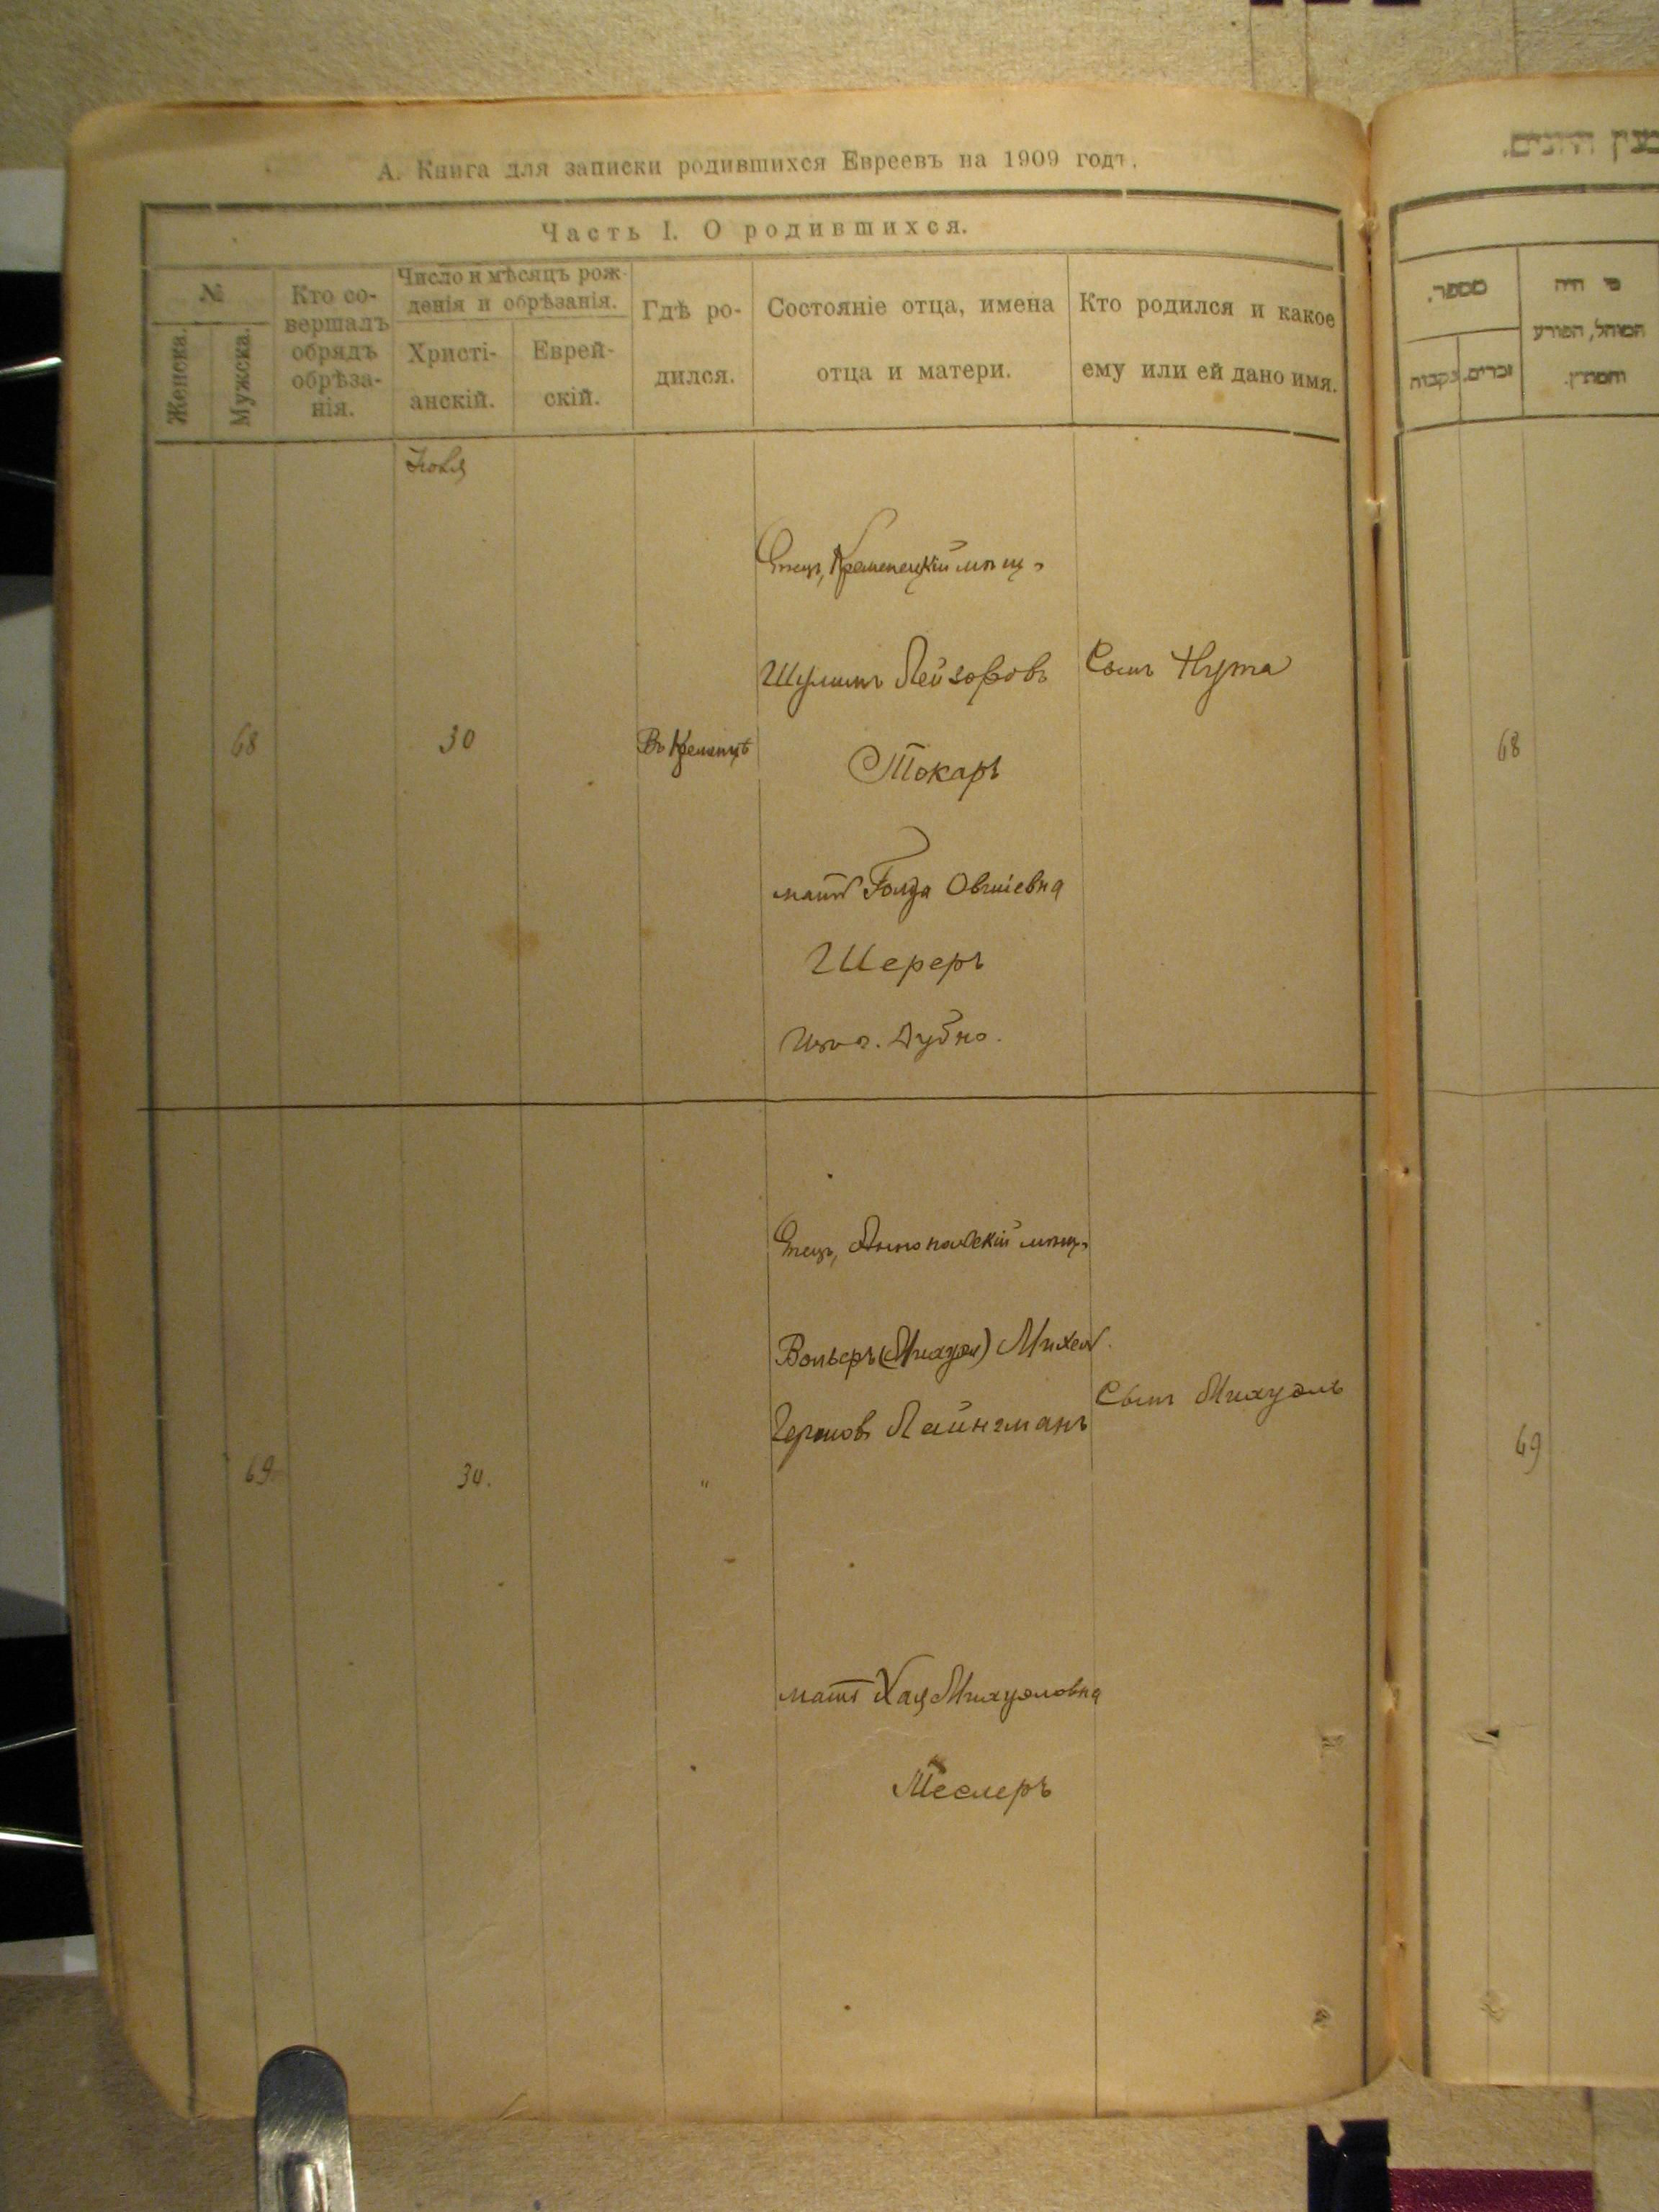 А. Книга для записки родившихся Евреевъ на 1909 годъ.
Часть I. О родившихся.
№
Женска.
Мужска.
Кто со-
вершалъ
обрядъ
обрѣза-
нія.
Число и мѣсяцъ рож-
денія и обрѣзанія.
Христі-
анскій.
Еврей-
скій.
Гдѣ ро-
дился.
Состояніе отца, имена
отца и матери.
Кто родился и какое
ему или ей дано имя.
68
30
Въ Кременцѣ
Отецъ, Кременецкій мѣщ.
Шулимъ Лейзоровъ
Токаръ
мать Голда Овшіевна
Шереръ
Изъ г. Дубно.
Сынъ Нута
69
30.
"
Отецъ, мѣщ.
Михел.
Гершовъ Лайнгманъ
мать Хая Михуэловна
Теслеръ
Сынъ Михуэль
מספר.
זכרים.
נקבות
מי היה
המוהל, הפורע
והמוצץ.
68
69